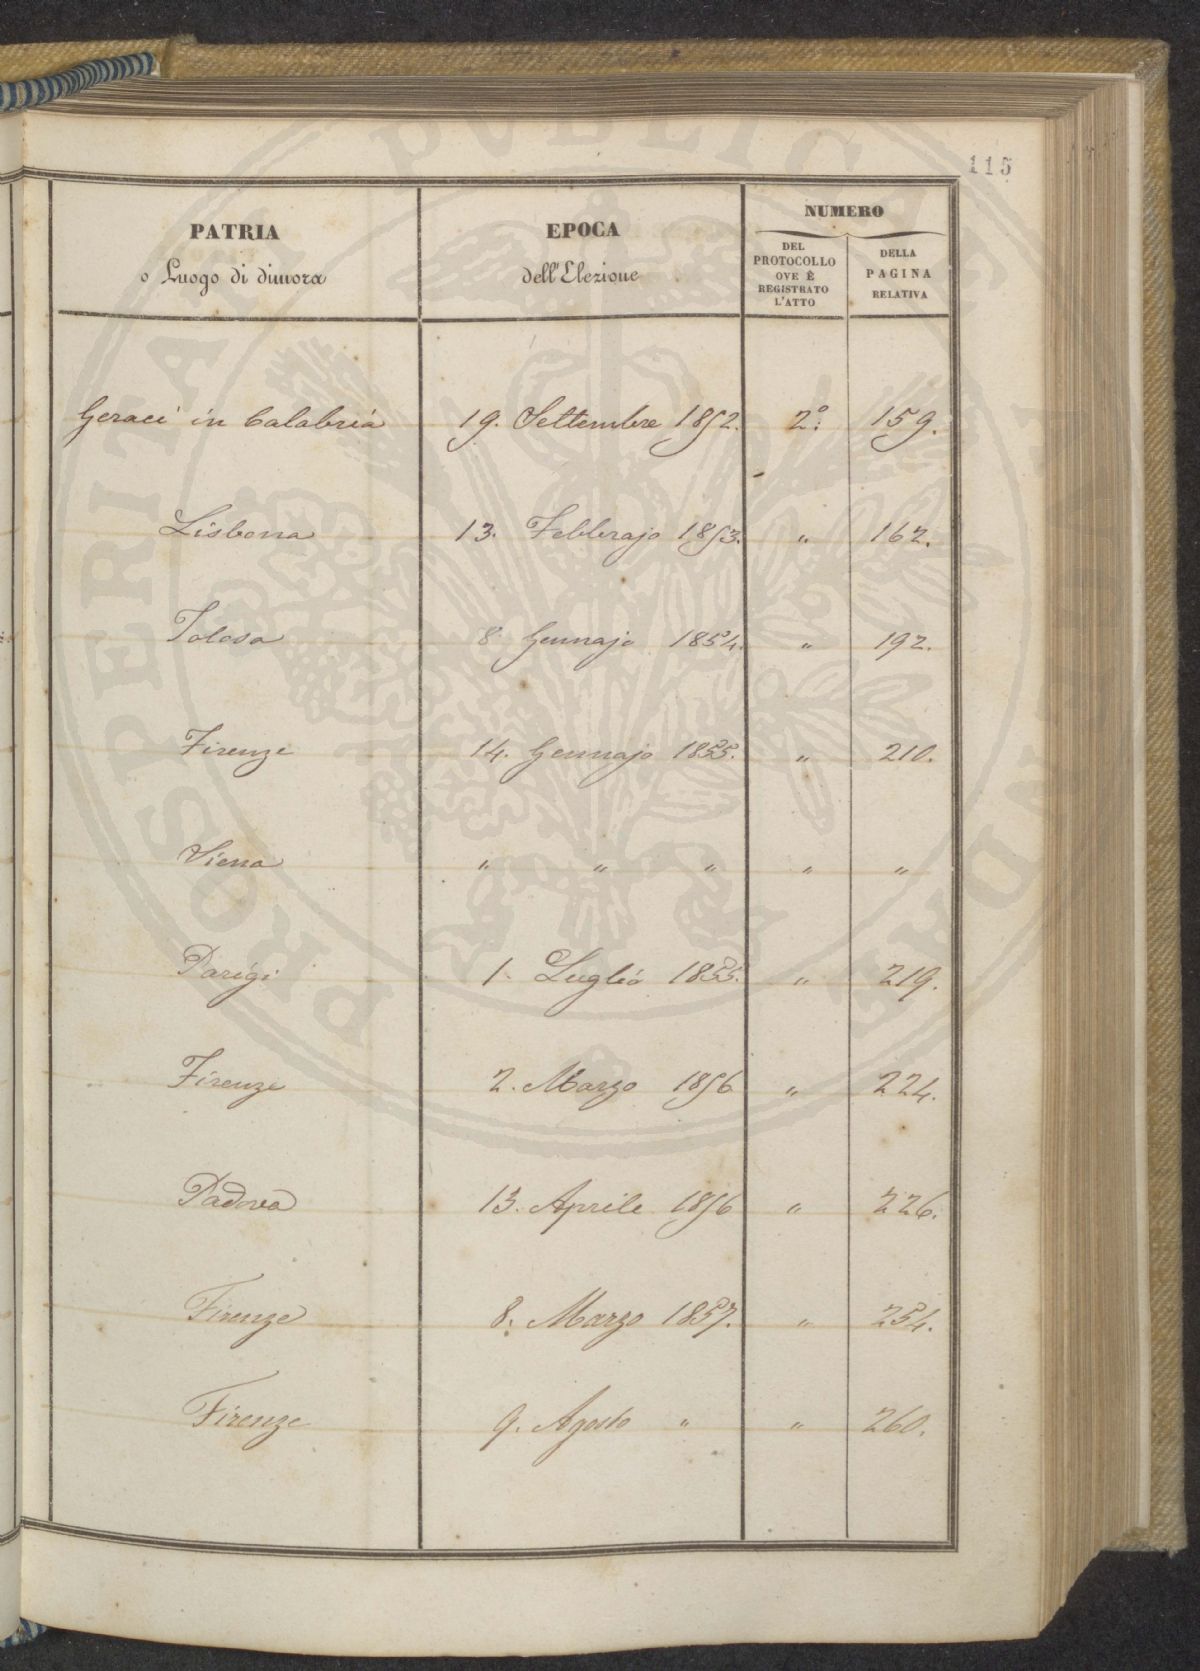 115
PATRIA
o Luogo di dimora
EPOCA
dell'Elezione
NUMERO
DEL
PROTOCOLLO
OVE È
REGISTRATO
L'ATTO
DELLA
PAGINA
RELATIVA
Geraci in Calabria 19. Settembre 1852. 2º: 159.
Lisbona 13. Febbrajo 1853. " 162.
Tolosa 8 Gennajo 1854. " 192.
Firenze 14. Gennajo 1855. " 210.
Viena " " " " "
Parigi 1. Luglio 1855. " 219.
Firenze 2. Marzo 1856 " 224.
Padova 13. Aprile 1856 " 226.
Firenze 8. Marzo 1857. " 254.
Firenze 9. Agosto " " 260.